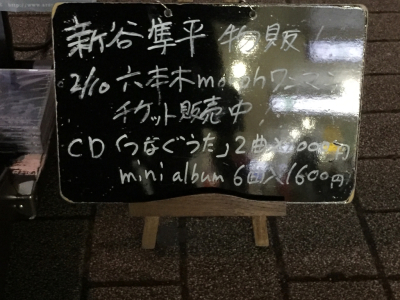 新谷隼平 物販!
2/10 六本木morphワンマン
チケット販売中!
CD「つなぐうた」2曲入
mini album 6曲入1600円